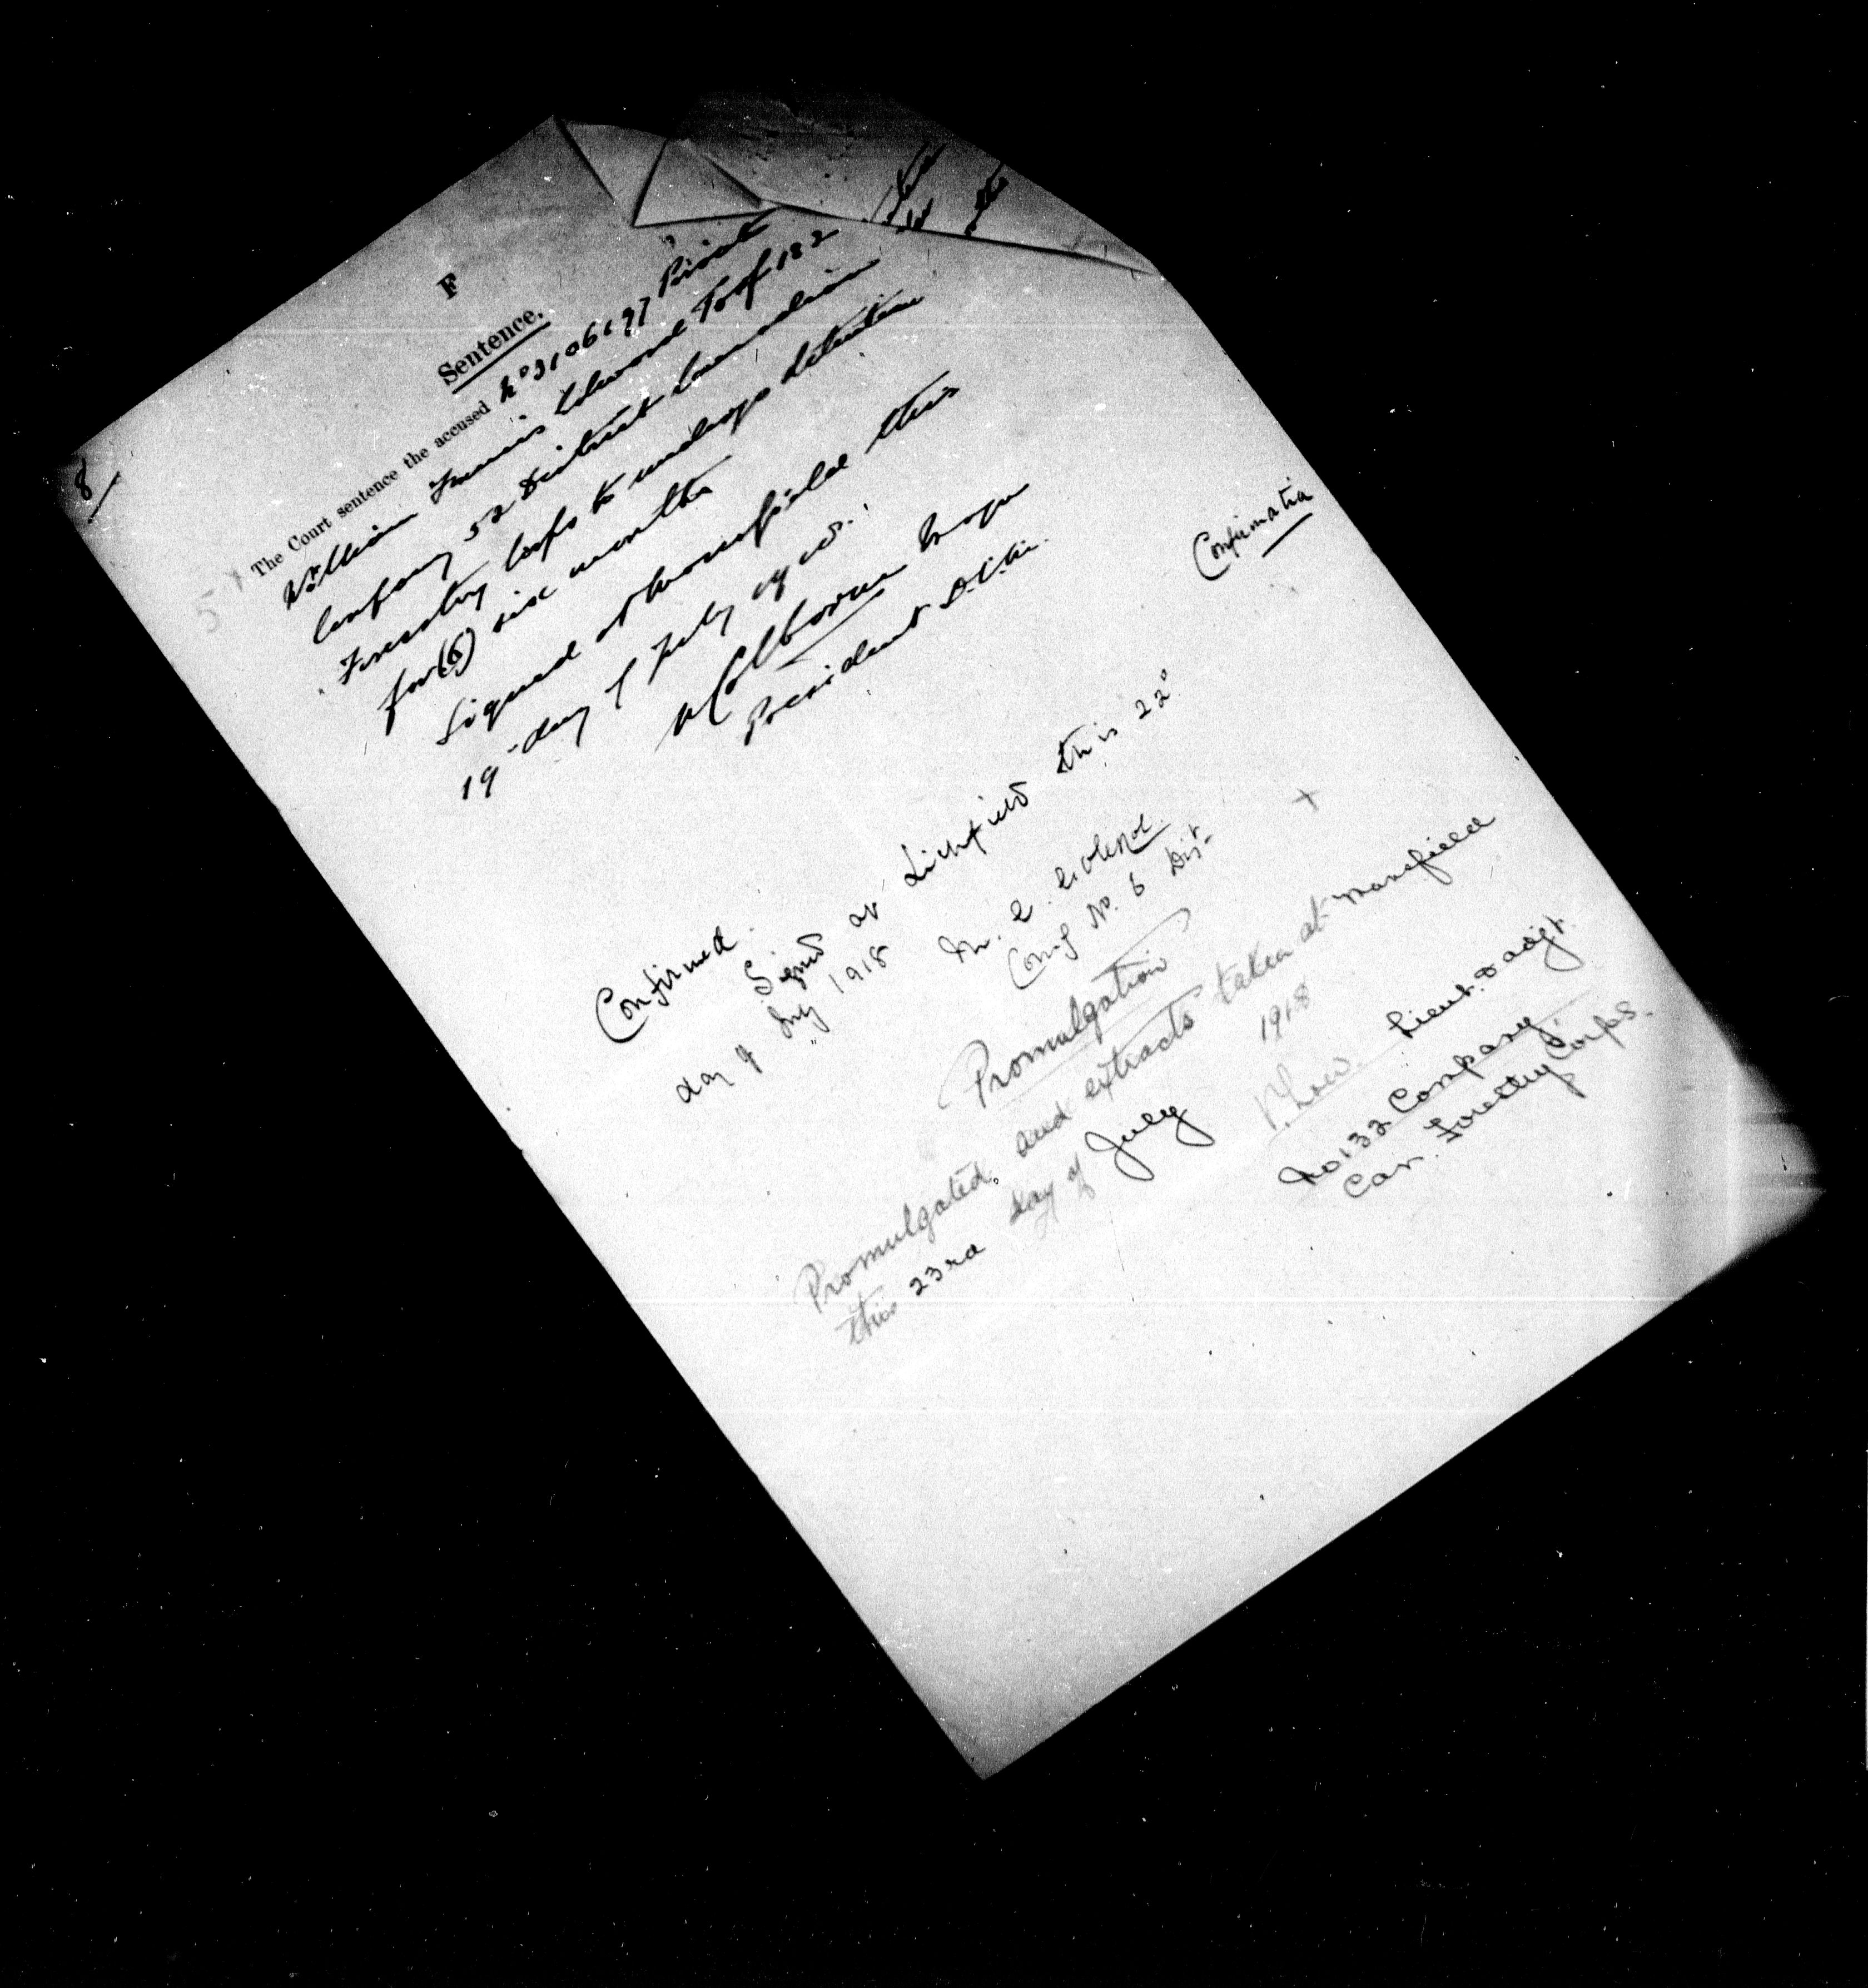 8/
F
Sentence.
The Court sentence the accused No 3106197 Private
William Francis Edward Toof 132
Company 52 District Canadian
Forestry Corps to undergo detention
for (6) six months
Signed at Mansfield this
19 day of July 1918.
Colborne Major
President D.C.M.
Confirmation
Confirmed.
Signed at Lichfield this 22°
day of July 1918
Comg No. 6 Dist
Promulgation
Promulgated, and extracts taken at Mansfield
this 23rd day of July 1918
Lieut. & adjt.
No 132 Company,
Can. Forestry Corps.